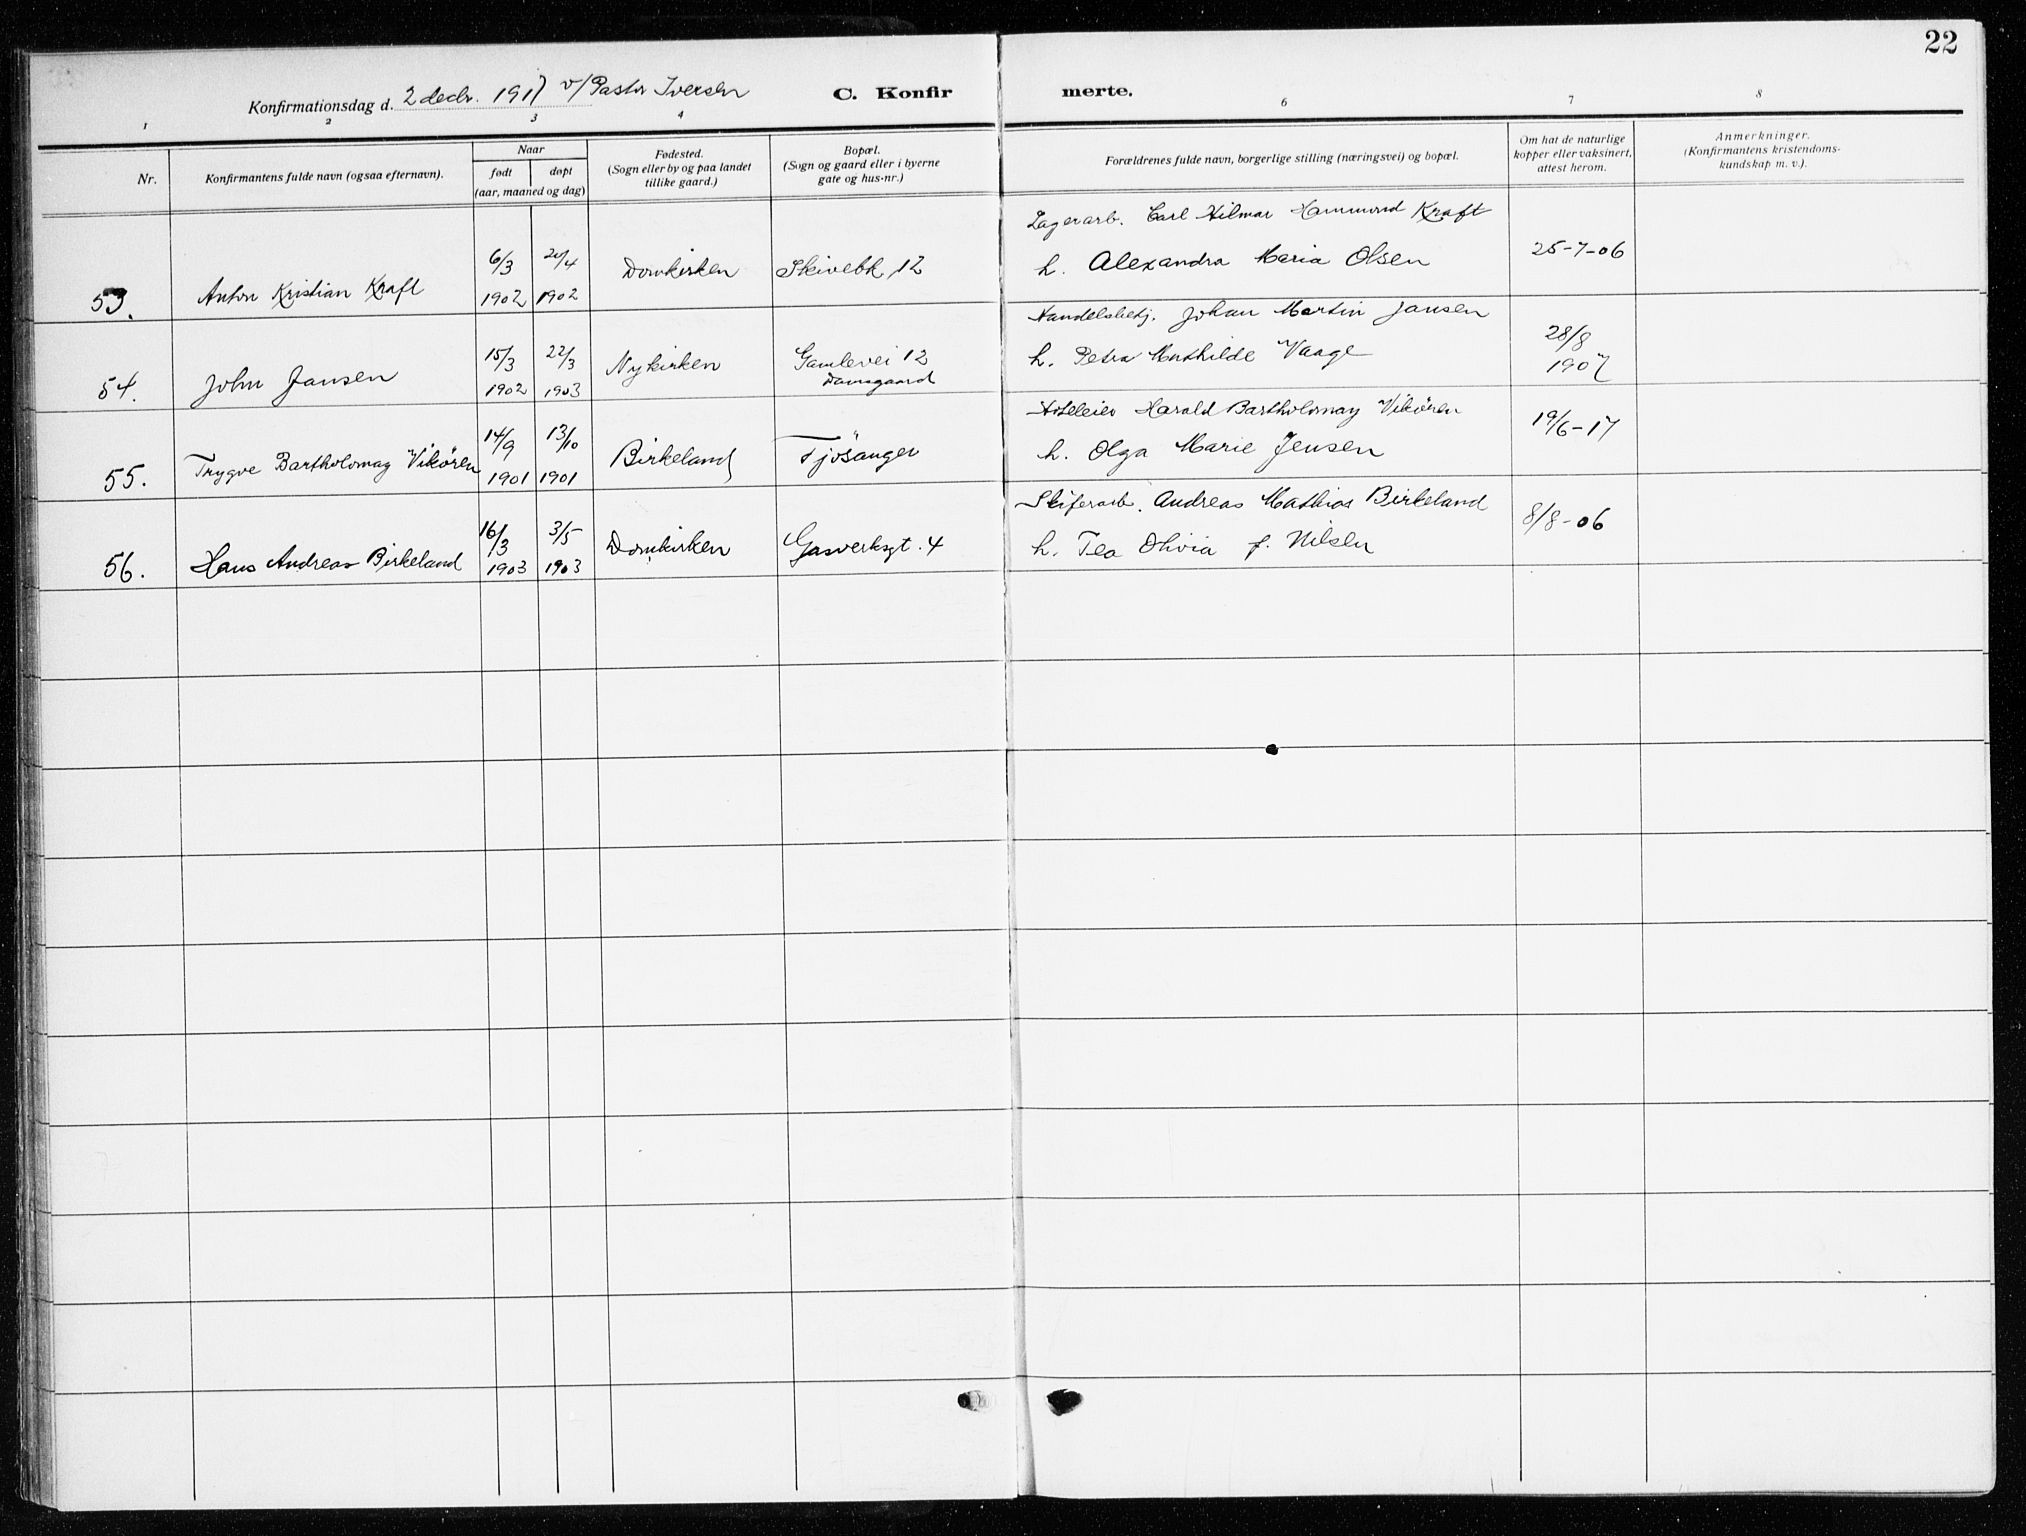 22
Konfirmationsdag d. 2 decbr. 1917 v/ Pastor Iversen
C. Konfirmerte.
1 2 3 4 6 7 8
Nr.
Konfirmantens fulde navn (ogsaa efternavn).
Naar
født døpt
(aar, maaned og dag)
Fødested.
(Sogn eller by og paa landet
tillike gaard.)
Bopæl.
(Sogn og gaard eller i byerne
gate og hus-nr.)
Forældrenes fulde navn, borgerlige stilling (næringsvei) og bopæl.
Om hat de naturlige
kopper eller vaksinert,
attest herom.
Anmerkninger.
(Konfirmantens kristendoms-
kundskap m. v.).
53. Anton Kristian Kraft
6/3 1902
20/4 1902
Domkirken
Skivebk 12
Lagerarb. Carl Hilmar Hammond Kraft
h. Alexandra Maria Olsen
25-7-06
54. John Jansen
15/3 1902
22/3 1903
Nykirken
Gamlevei 12
Damsgaard
Handelsbetj. Johan Martin Jansen
h. Petra Mathilde Vaage
28/8
1907
55. Trygve Bartholomay Vikören
14/9 1901
13/10 1901
Birkeland
Fjösanger
Hoteleier Harald Bartholomay Vikören
h. Olga Marie Jensen
19/6-17
56. Hans Andreas Birkeland
16/3 1903
3/5 1903
Domkirken
Gasverksgt. 4
Skiferarb. Andreas Mathias Birkeland
h. Tea Olivia f. Nilsen
8/8-06